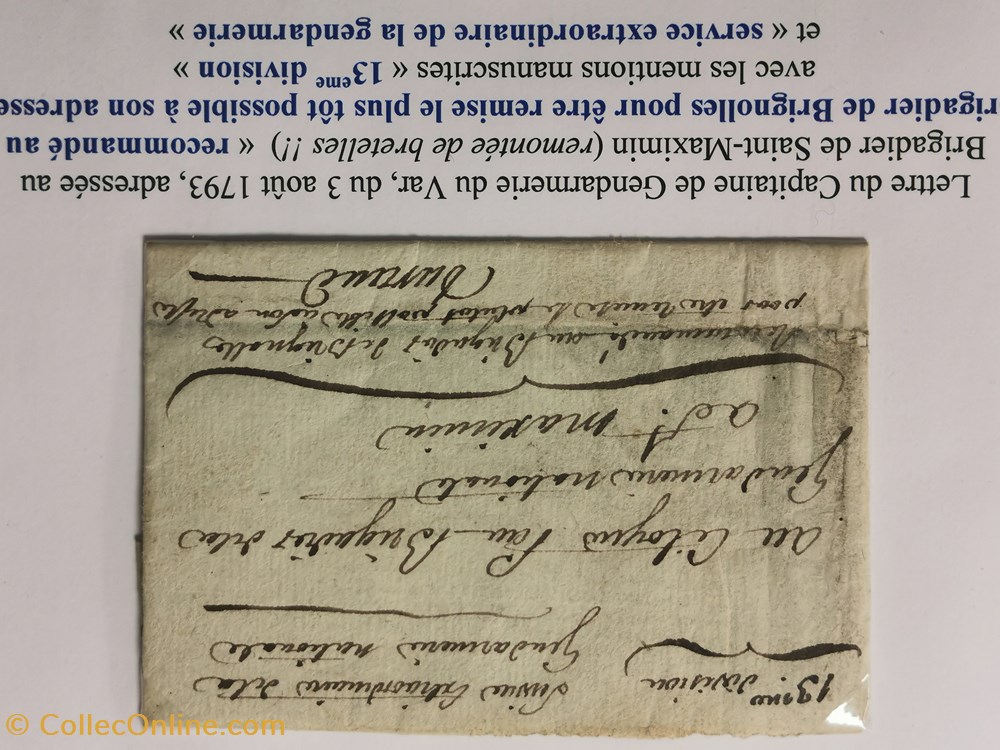 13eme division Service Extraordinaire dela
Gendarmerie nationale
au Citoyen Pau Brigadier dela
Gendarmerie nationale
a St. maximin
Recommandé au Brigadier de Brignolles
pour etre remise le plutot possible a son adresse
Durand
Lettre du Capitaine de Gendarmerie du Var, du 3 août 1793, adressée au
Brigadier de Saint-Maximin (remontée de bretelles !!) « recommandé au
rigadier de Brignolles pour être remise le plus tôt possible à son adresse
avec les mentions manuscrites « 13eme division »
et « service extraordinaire de la gendarmerie »
© CollecOnline.com